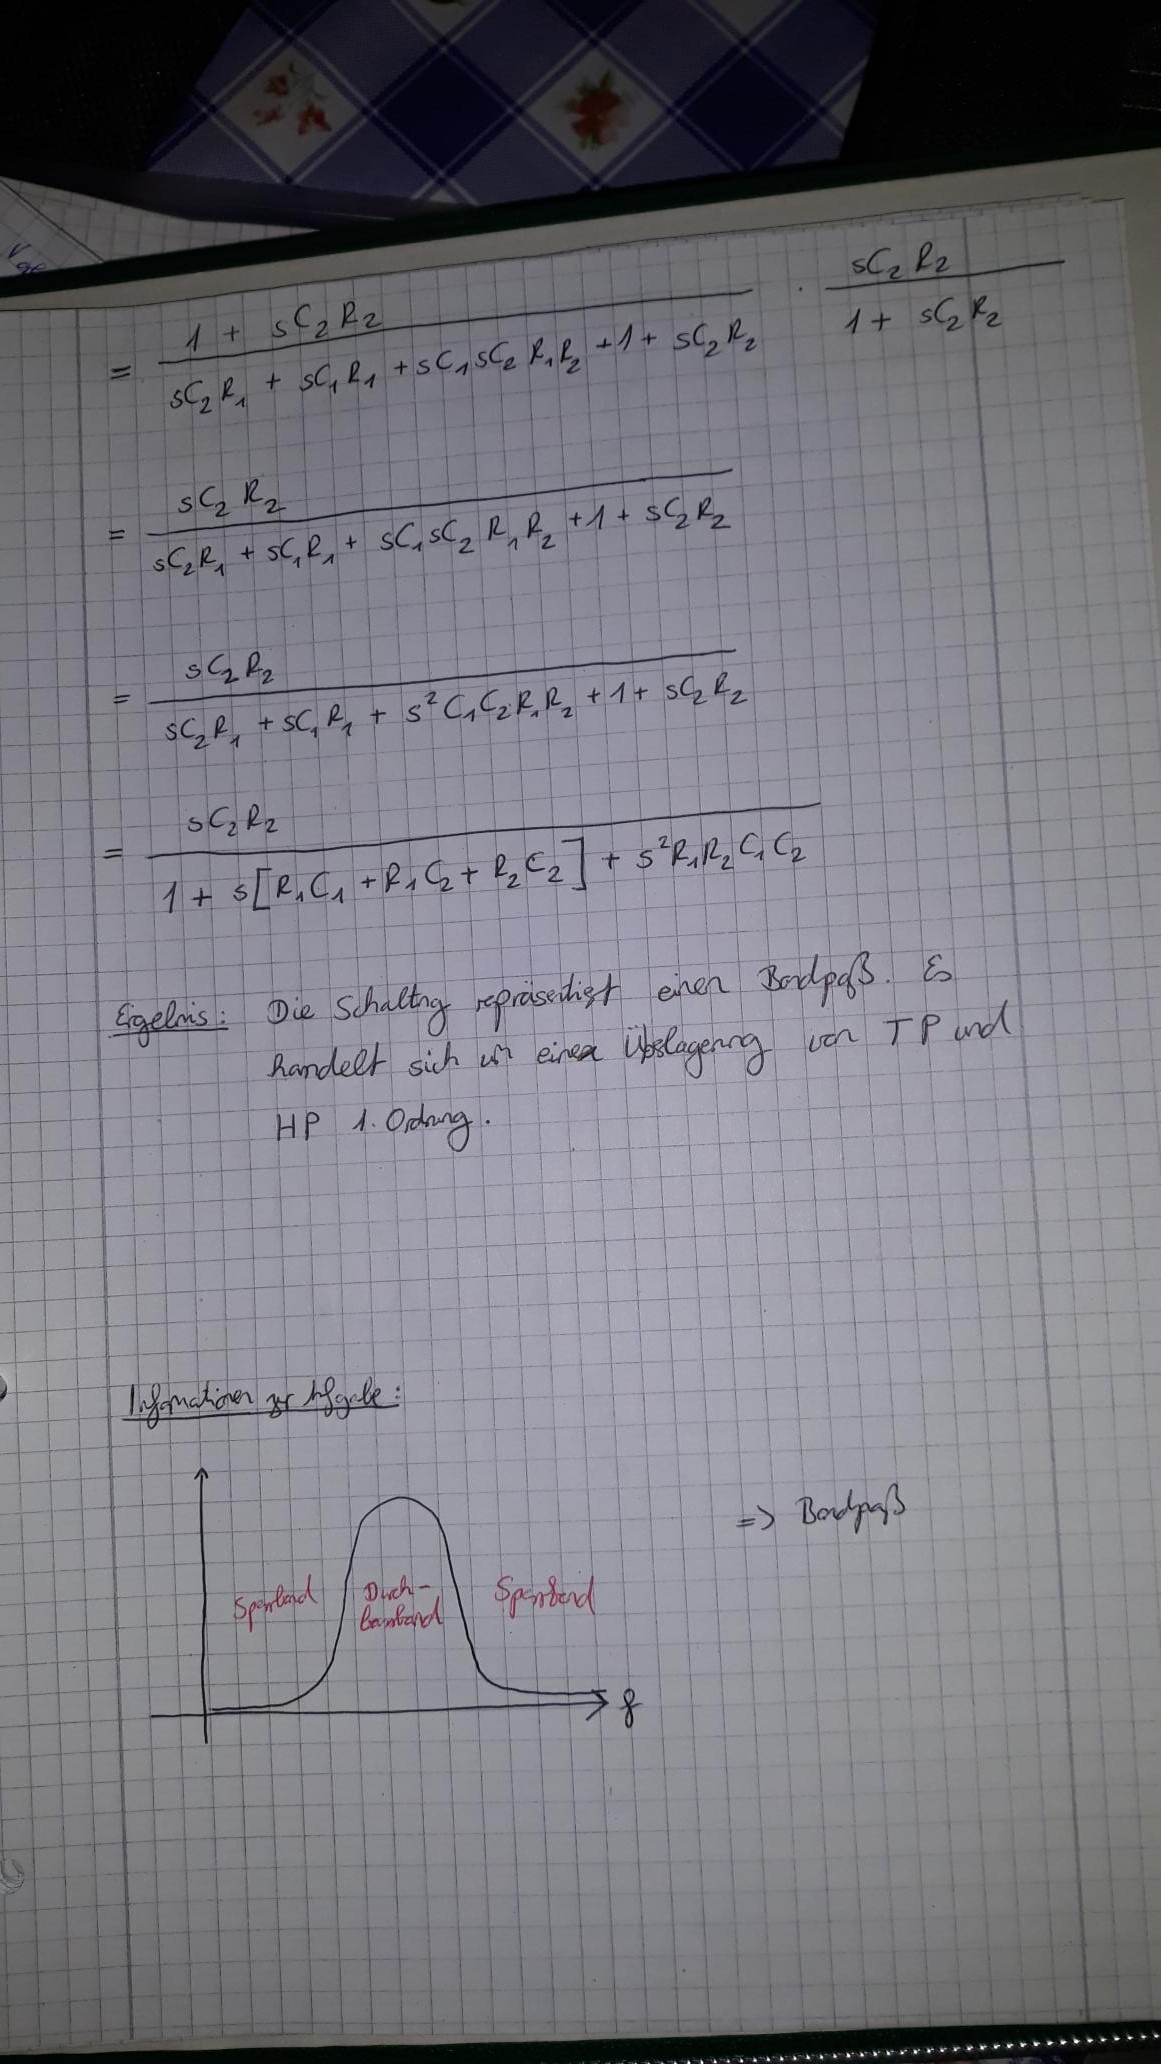 = (1 + sC₂R₂) / (sC₂R₁ + sC₁R₁ + sC₁sC₂R₁R₂ + 1 + sC₂R₂) · (sC₂R₂) / (1 + sC₂R₂)
= (sC₂R₂) / (sC₂R₁ + sC₁R₁ + sC₁sC₂R₁R₂ + 1 + sC₂R₂)
= (sC₂R₂) / (sC₂R₁ + sC₁R₁ + s²C₁C₂R₁R₂ + 1 + sC₂R₂)
= (sC₂R₂) / (1 + s[R₁C₁ + R₁C₂ + R₂C₂] + s²R₁R₂C₁C₂)
Ergebnis: Die Schaltung repräsentiert einen Bandpaß. Es
handelt sich um eine Überlagerung von TP und
HP 1. Ordnung.
Informationen zur Aufgabe:
=> Bandpaß
Sperrband Durch- Sperrband
lassband
f